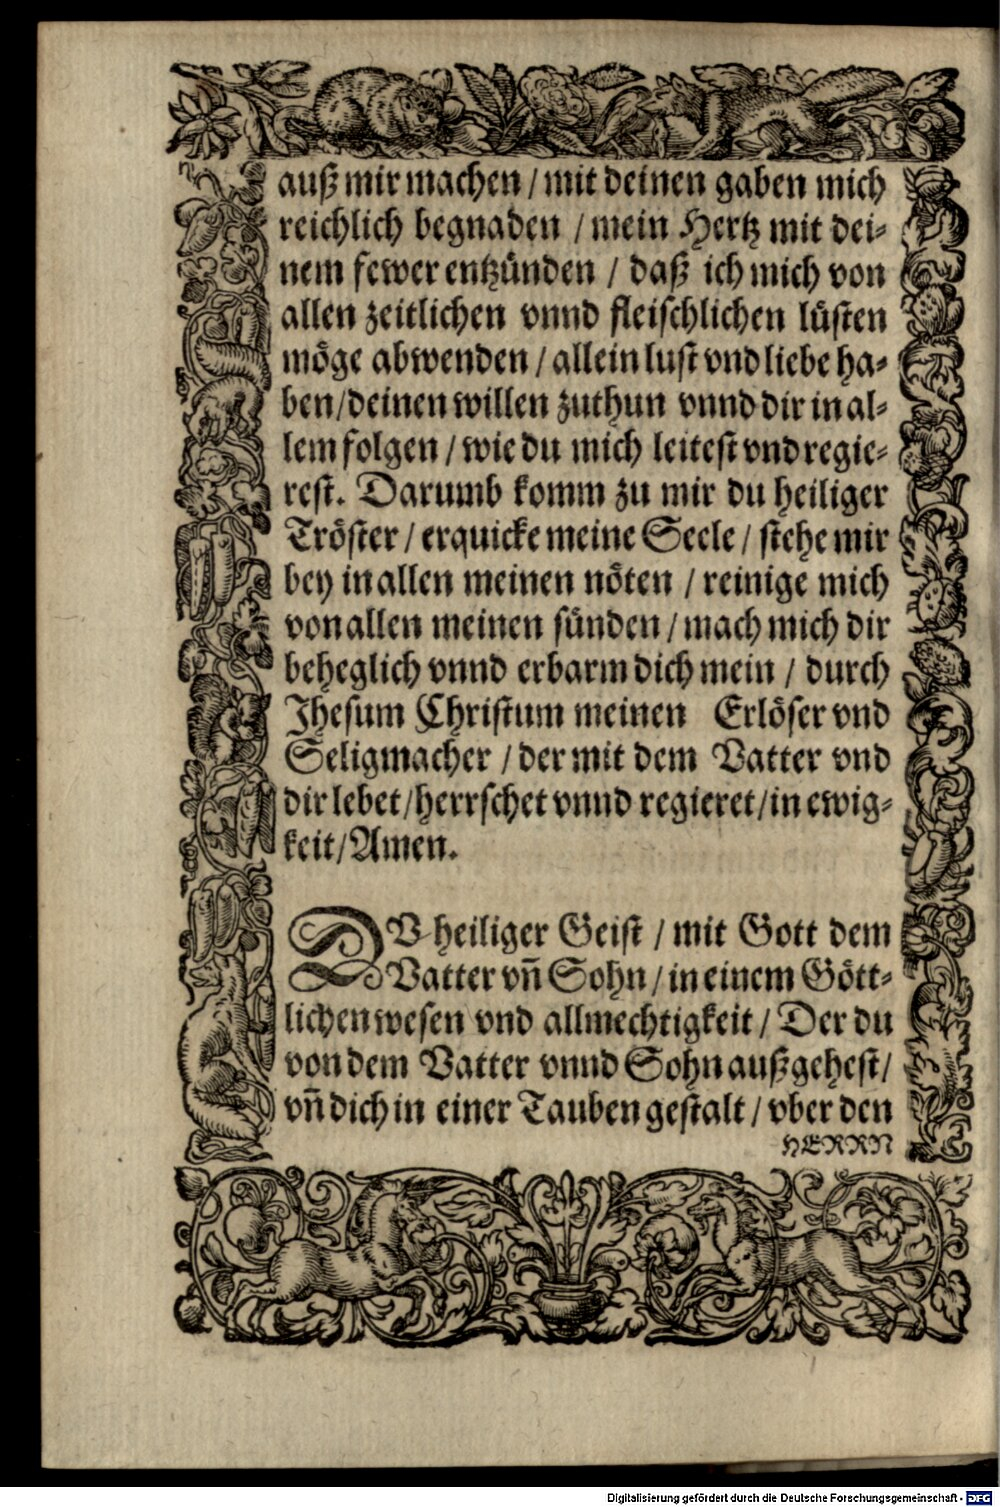 auß mir machen / mit deinen gaben mich
reichlich begnaden / mein Hertz mit dei⸗
nem fewer entzünden / daß ich mich von
allen zeitlichen vnnd fleischlichen lüsten
möge abwenden / allein lust vnd liebe ha⸗
ben / deinen willen zuthun vnnd dir in al⸗
lem folgen / wie du mich leitest vnd regie⸗
rest. Darumb komm zu mir du heiliger
Tröster / erquicke meine Seele / stehe mir
bey in allen meinen nöten / reinige mich
von allen meinen sünden / mach mich dir
beheglich vnnd erbarm dich mein / durch
Jhesum Christum meinen Erlöser vnd
Seligmacher / der mit dem Vatter vnd
dir lebet / herrschet vnnd regieret / in ewig⸗
keit / Amen.
DV heiliger Geist / mit Gott dem
Vatter vñ Sohn / in einem Gött⸗
lichen wesen vnd allmechtigkeit / Der du
von dem Vatter vnnd Sohn außgehest /
vñ dich in einer Tauben gestalt / vber den
HERRN
Digitalisierung gefördert durch die Deutsche Forschungsgemeinschaft - DFG